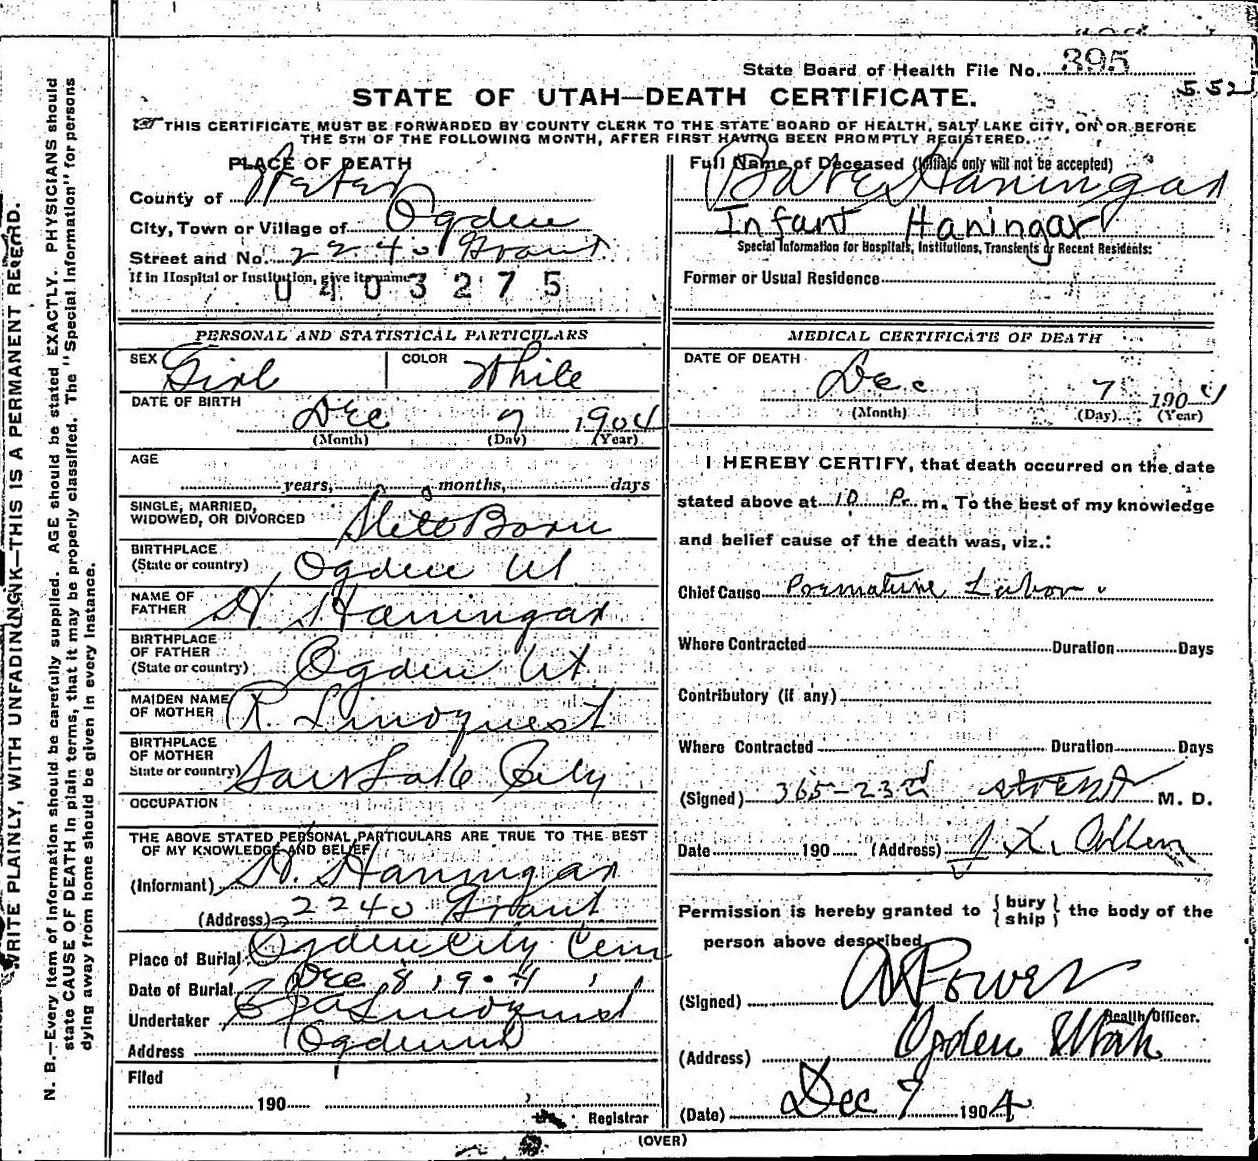 State Board of Health File No. 395
552
STATE OF UTAH—DEATH CERTIFICATE.
THIS CERTIFICATE MUST BE FORWARDED BY COUNTY CLERK TO THE STATE BOARD OF HEALTH, SALT LAKE CITY, ON OR BEFORE
THE 5TH OF THE FOLLOWING MONTH, AFTER FIRST HAVING BEEN PROMPTLY REGISTERED.
PLACE OF DEATH
County of
City, Town or Village of Ogden
Street and No. 2240 Grant
If in Hospital or Institution, give its name
0403275
Full Name of Deceased (Initials only will not be accepted)
Haningar
Infant Haningar
Special Information for Hospitals, Institutions, Transients or Recent Residents:
Former or Usual Residence
PERSONAL AND STATISTICAL PARTICULARS
SEX Girl COLOR White
DATE OF BIRTH
Dec 7 1904
(Month) (Day) (Year)
AGE
years, months, days
SINGLE, MARRIED,
WIDOWED, OR DIVORCED Stile Born
BIRTHPLACE
(State or country) Ogden Ut
NAME OF
FATHER H. Haningar
BIRTHPLACE
OF FATHER
(State or country) Ogden Ut
MAIDEN NAME
OF MOTHER R. Lindquest
BIRTHPLACE
OF MOTHER
State or country) Salt Lake City
OCCUPATION
THE ABOVE STATED PERSONAL PARTICULARS ARE TRUE TO THE BEST
OF MY KNOWLEDGE AND BELIEF
(Informant) H. Haningar
(Address) 2240 Grant
Place of Burial Ogden City Cem
Date of Burial Dec 8 1904
Undertaker Lindquist
Address Ogden
Filed
190
Registrar
MEDICAL CERTIFICATE OF DEATH
DATE OF DEATH
Dec 7 1904
(Month) (Day) (Year)
I HEREBY CERTIFY, that death occurred on the date
stated above at 10 P. m. To the best of my knowledge
and belief cause of the death was, viz.:
Chief Cause Premature Labor
Where Contracted Duration Days
Contributory (if any)
Where Contracted Duration Days
(Signed) 365-23rd street M. D.
Date 190 (Address)
Permission is hereby granted to {bury
ship} the body of the
person above described
(Signed) Power
Health Officer.
(Address) Ogden Utah
(Date) Dec 9 1904
(OVER)
WRITE PLAINLY, WITH UNFADING INK—THIS IS A PERMANENT RECORD.
N. B.—Every item of information should be carefully supplied. AGE should be stated EXACTLY. PHYSICIANS should
state CAUSE OF DEATH in plain terms, that it may be properly classified. The "Special Information" for persons
dying away from home should be given in every instance.